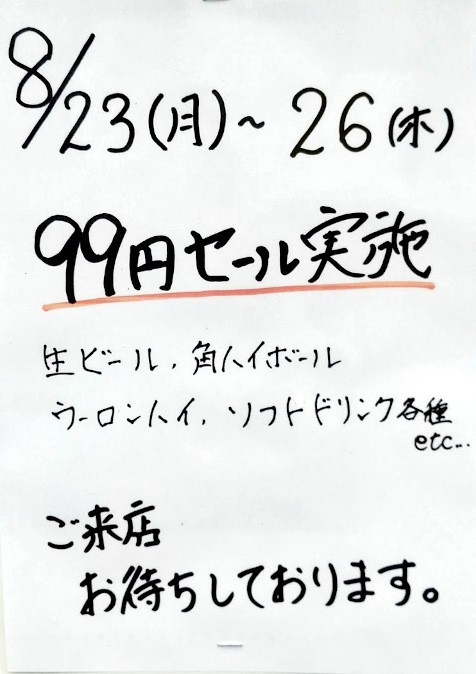 8/23(月)~26(木)
99円セール実施
生ビール,角ハイボール
ウーロンハイ,ソフトドリンク各種
etc...
ご来店
お待ちしております。